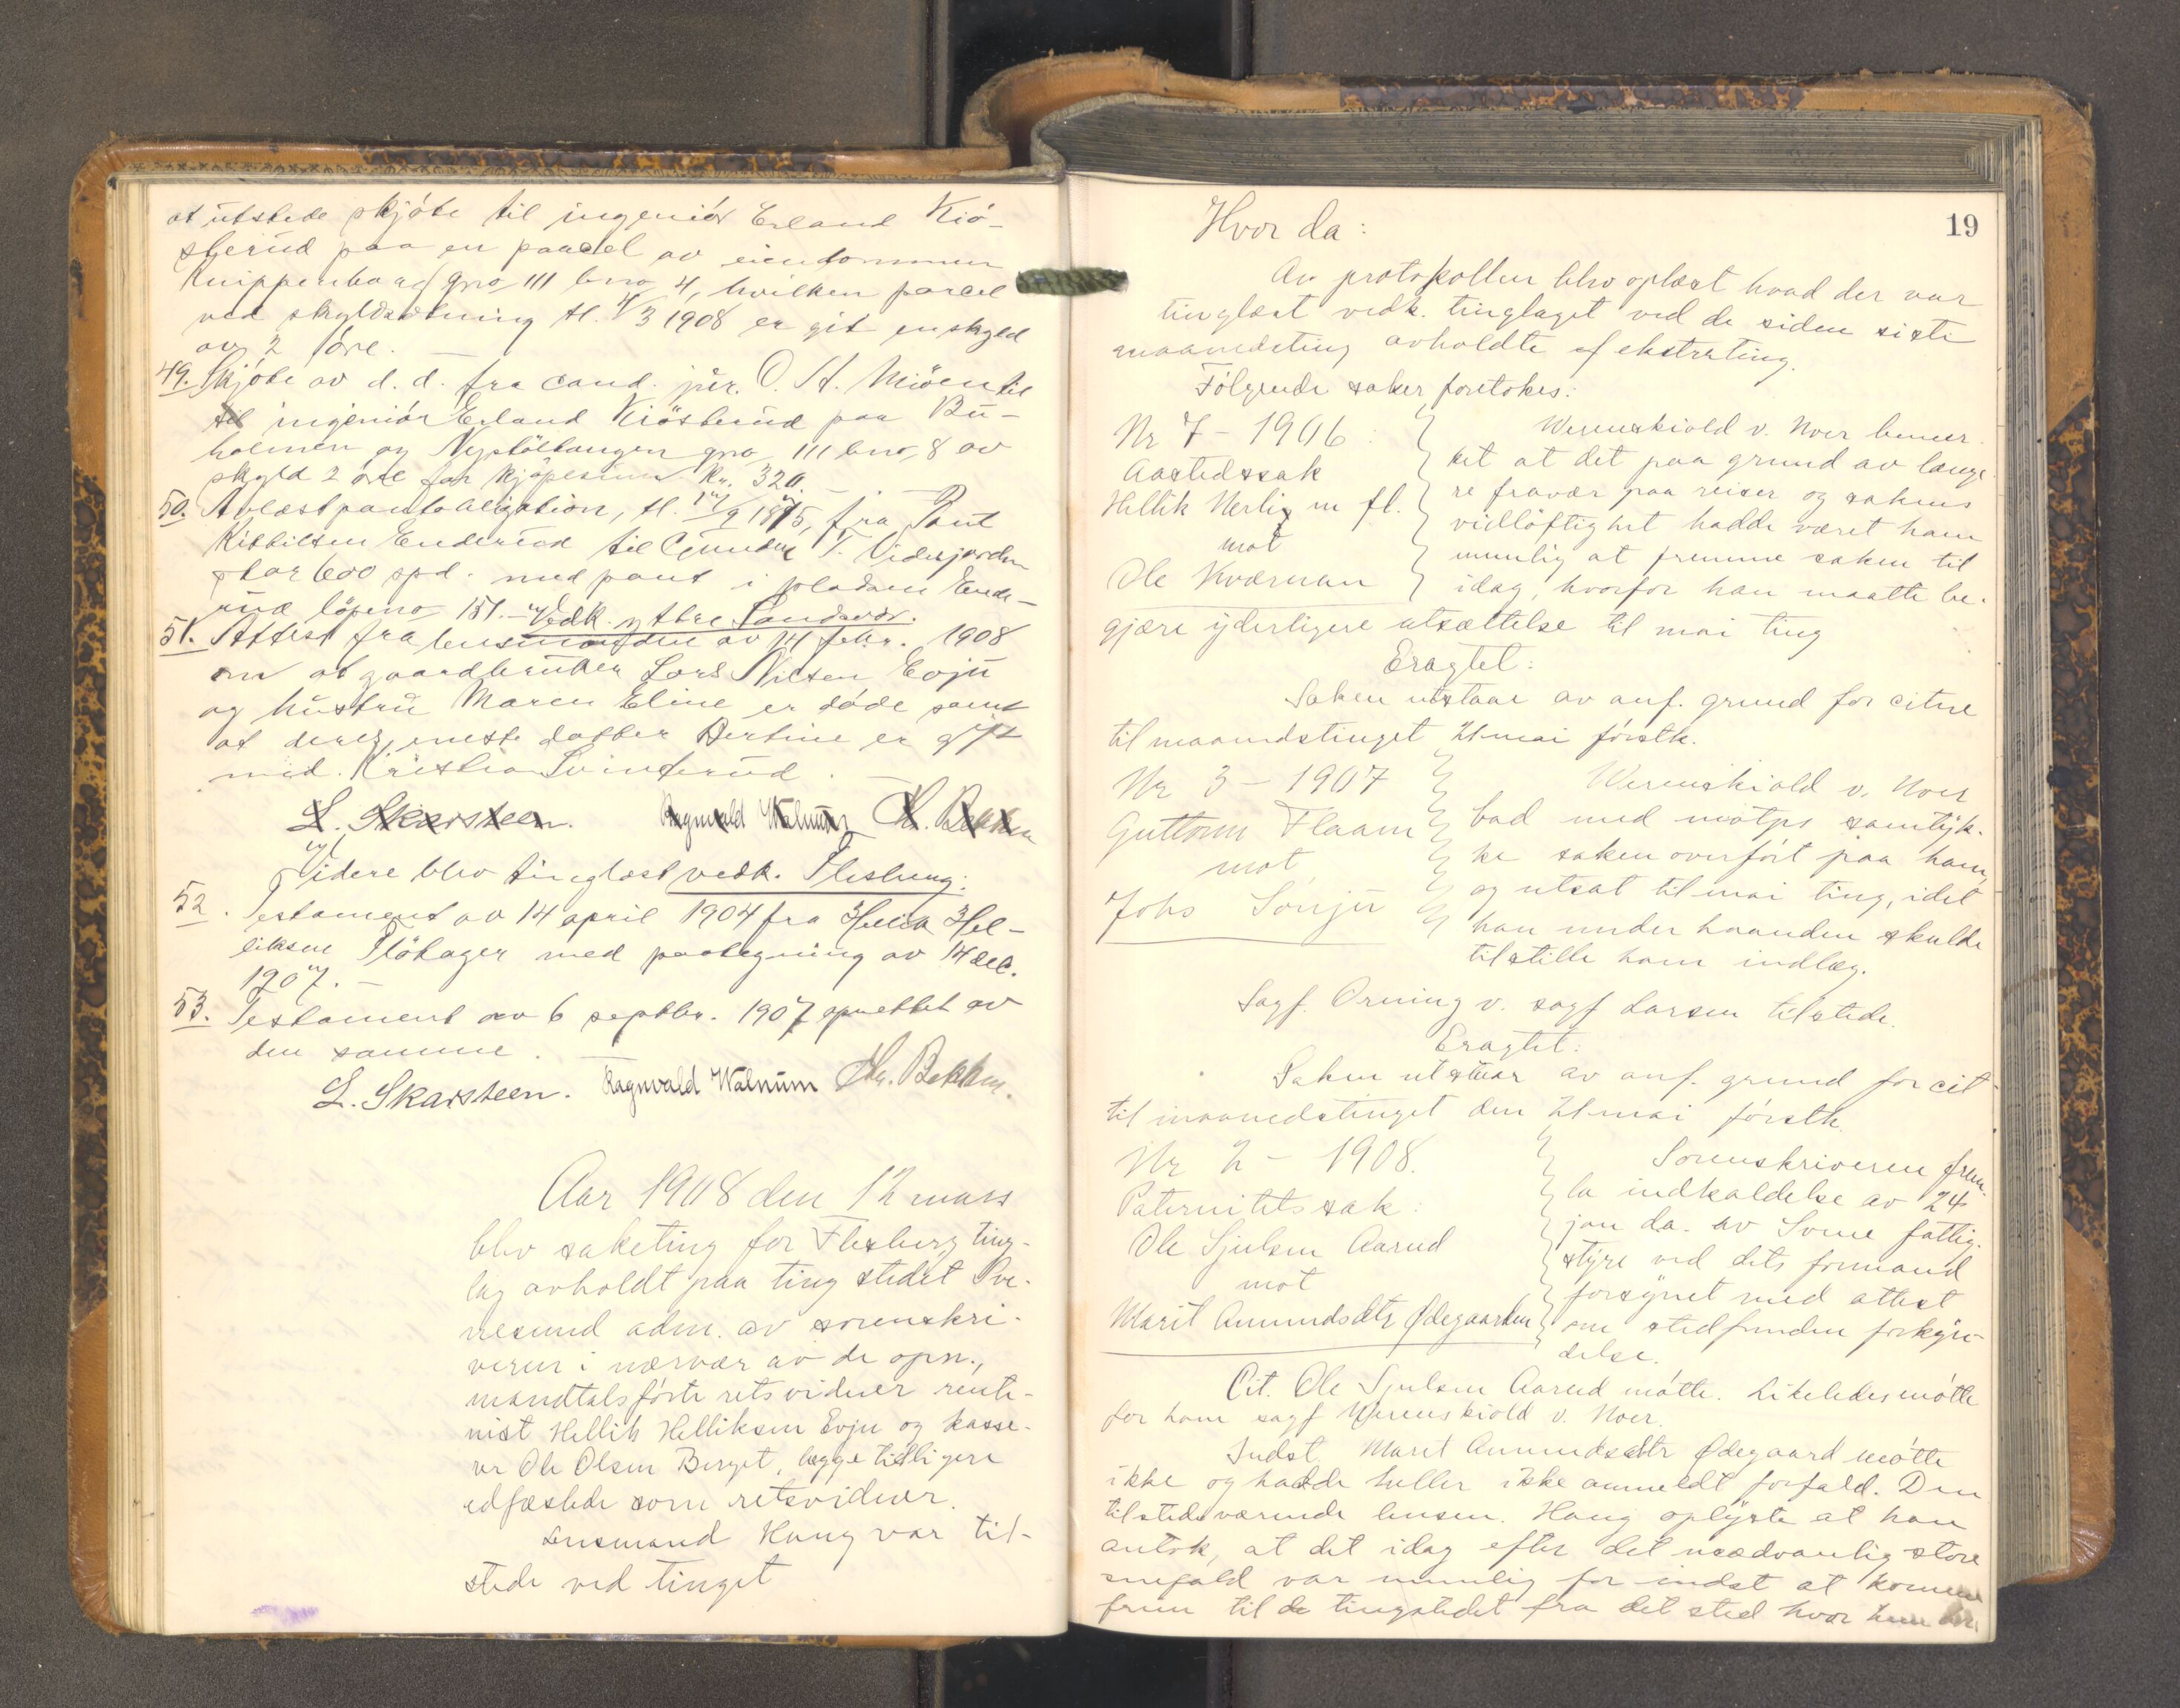 at utstede skjöte til ingeniör Erland Kiö-
sterud paa en paacel av eiendommen
Knippenborg gno 111 bno 4, hvilken parcel
ved skyldsætning tl. 4/3 1908 er git en skyld
av 2 öre. —
49. Skjöte av d. d. fra cand. jur. O. St. Miöen til
til ingeniör Erland Kiösterud paa Bu-
holmen og Nyplöttangen gno 111 bno 8 av
skyld 2 öre for kjöpesum Kr. 320. —
50. Avlæst pantobligation, tl. 14/9 1875, fra Paul
Kittilsen Enderud til Gunder T. Vidersjorden
stor 600 spd. med pant i pladsen Ende-
rud löpeno 151. — Vedk. ytre Sandsvær.
51. Attest fra lensmanden av 14 febr. 1908
om at gaardbruker Lars Nilsen Evju
og hustru Maren Eline er döde samt
at deres eneste datter Bertine er gift
med Kristian Svinterud. —
L. Skarsteen. Ragnvald Walnum Chr. Bekken
Videre blev tinglæst vedk. Flesberg:
52. Testament av 14 april 1904 fra Hellik Hel-
liksen Flötager med paategning av 14 dec.
1907. —
53. Testament av 6 septbr. 1907 oprettet av
den samme. —
L. Skarsteen. Ragnvald Walnum Chr. Bekken.
Aar 1908 den 12 mars
blev saketing for Flesberg ting-
lag avholdt paa ting stedet Sve-
nesund adm. av sorenskri-
veren i nærvær av de opn.,
mandtalsförte retsvidner rente-
nist Hellik Helliksen Evju og kasse-
rer Ole Olsen Berget, begge tidligere
edfæstede som retsvidner.
Lensmand Haug var til-
stede ved tinget
19
Hvor da:
Av protokollen blev oplæst hvad der var
tinglæst vedk. tinglaget ved de siden siste
maanedsting avholdte ekstrating.
Fölgende saker foretokes:
Nr 7 - 1906:
Aastedssak
Hellik Nerli m fl.
mot
Ole Kværnan
Werenskiold v. Moer bemer-
ket at det paa grund av længe-
re fravær paa reiser og sakens
vidlöftighet hadde været ham
umulig at fremme saken til
idag, hvorfor han maatte be-
gjære yderligere utsættelse til mai ting
Eragtet:
Saken utstaar av anf. grund for citne
til maanedstinget 21 mai förstk.
Nr 3 - 1907
Guttorm Flaam
mot
Johs Sönju
Werenskiold v. Moer
bad med motps samtyk-
ke saken overfört paa ham,
og utsat til mai ting, idet
han under haanden skulde
tilstille ham indlæg.
Sagf. Orning v. sagf Larsen tilstede.
Eragtet:
Saken utstaar av anf. grund for cit-
til maanedstinget den 21 mai förstk.
Nr 2 - 1908.
Paternitetssak:
Ole Sjulsen Aarud
mot
Marit Amundsdtr Ødegaarden
Sorenskriveren frem-
la indkaldelse av 24
jan d.a. av Svene fattig-
styre ved dets formand
forsynet med attest
om stedfunden forkyn-
delse.
Cit. Ole Sjulsen Aarud mötte. Likeledes mötte
for ham sagf Werenskiold v. Moer.
Indst. Marit Amundsdtr Ødegaard mötte
ikke og hadde heller ikke anmeldt forfald. Den
tilstedeværende lensm. Haug oplyste at han
antok, at det idag efter det usædvanlig store
snefald var umulig for indst at komme
frem til de tingstedet fra det sted hvor hun